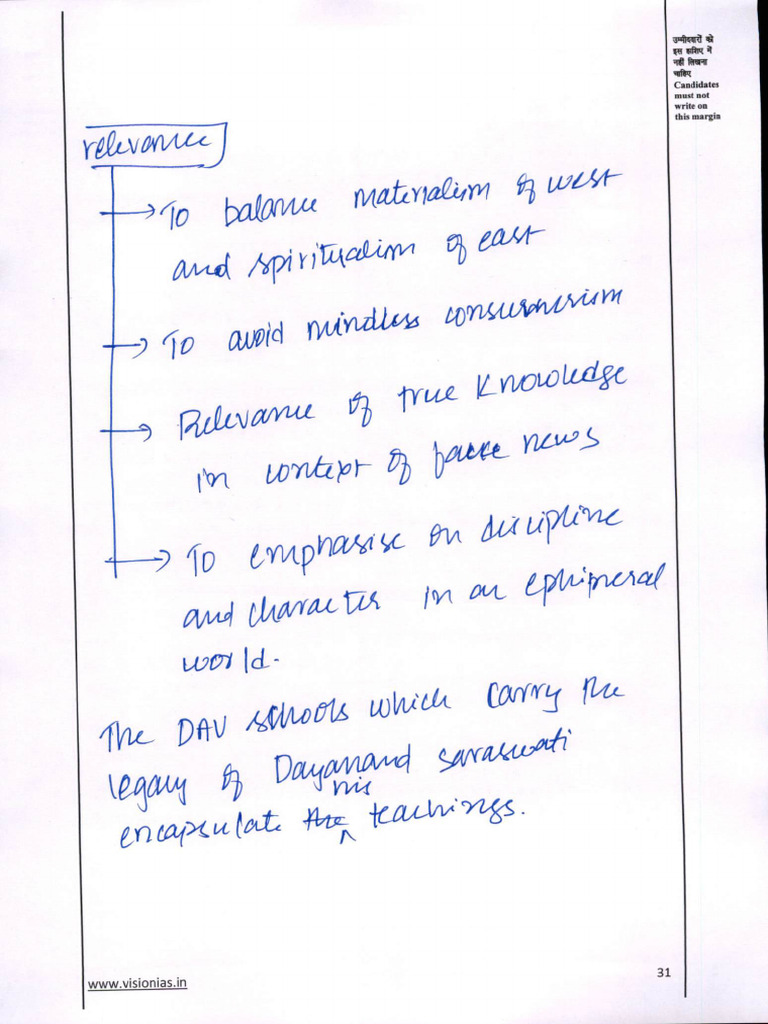 उम्मीदवारों को
इस हाशिए में
नहीं लिखना
चाहिए
Candidates
must not
write on
this margin
relevance
To balance materialism of west
and spiritualism of east
To avoid mindless consumerism
Relevance of true knowledge
in context of fake news
To emphasise on discipline
and character in an ephimeral
world.
The DAV schools which carry the
legacy of Dayanand saraswati
his
encapsulate the teachings.
31
www.visionias.in